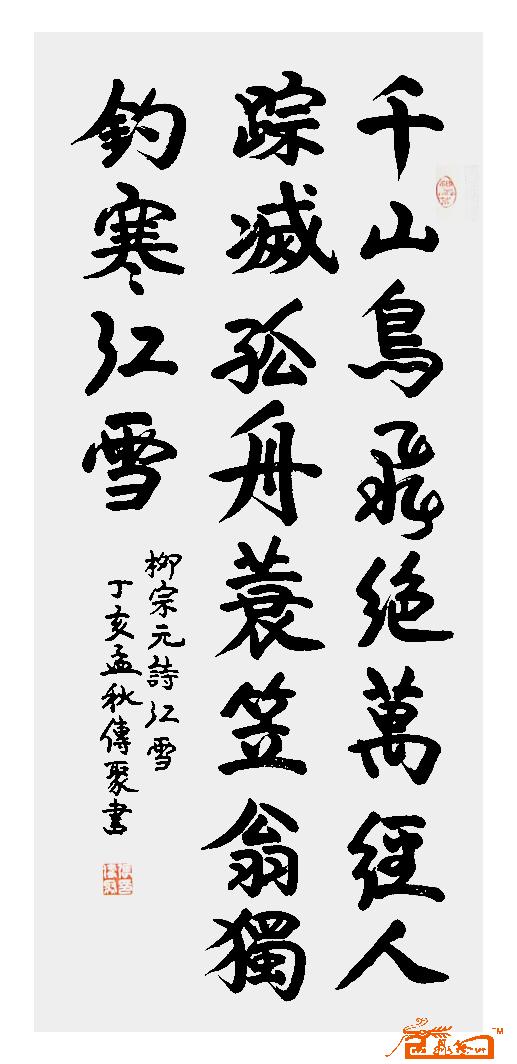 千山鳥飛絕萬經人
踪滅孤舟蓑笠翁獨
釣寒江雪
柳宗元詩江雪
丁亥孟秋傳聚書